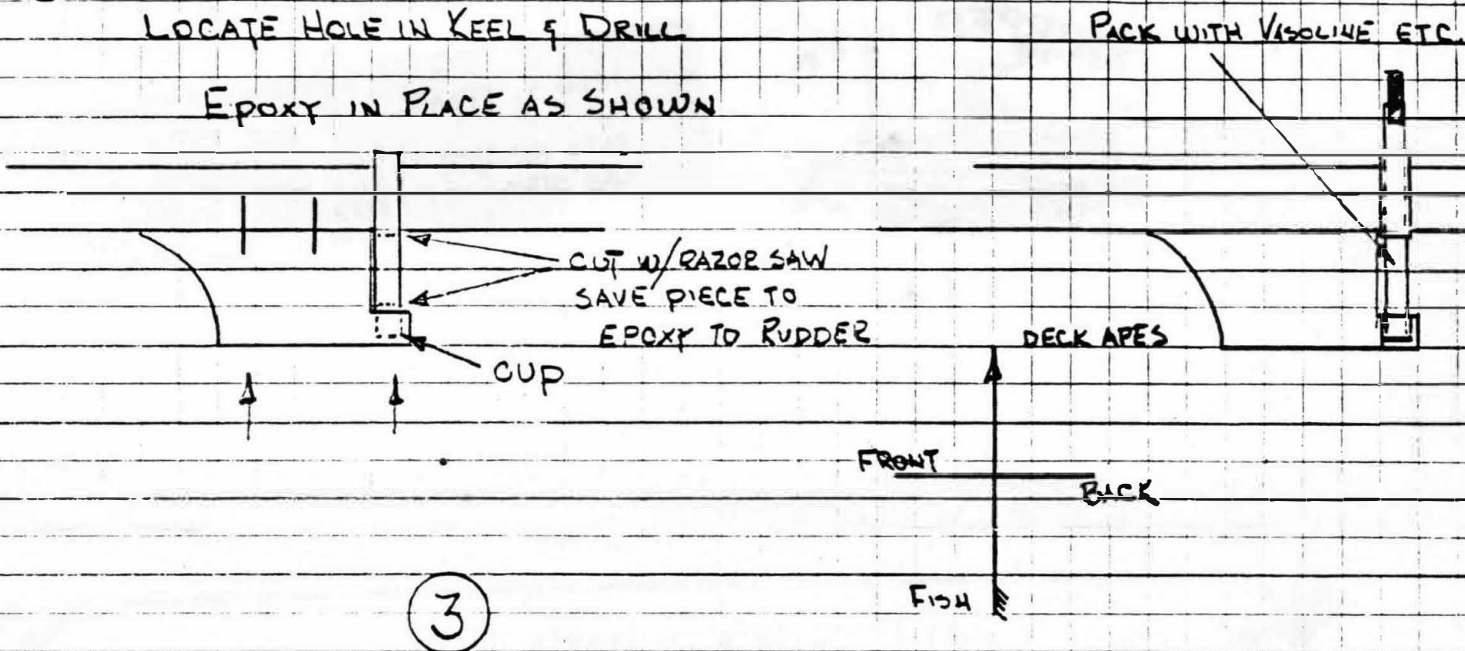 LOCATE HOLE IN KEEL & DRILL
PACK WITH VASOLINE ETC.
EPOXY IN PLACE AS SHOWN
CUT W/RAZOR SAW
SAVE PIECE TO
EPOXY TO RUDDER
CUP
DECK APES
FRONT
BACK
FISH
3